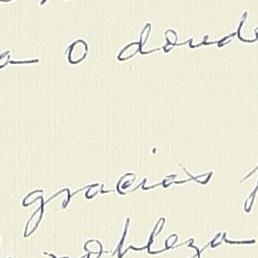 a o donde
gracias y
nobleza